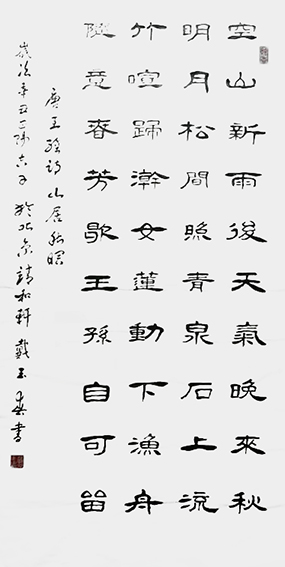 空山新雨後天氣晚來秋
明月松間照青泉石上流
竹喧歸澣女蓮動下漁舟
随意春芳歇王孫自可留
唐王維詩山居秋暝
歲次辛丑三陽吉日於北京靖和軒戴玉書